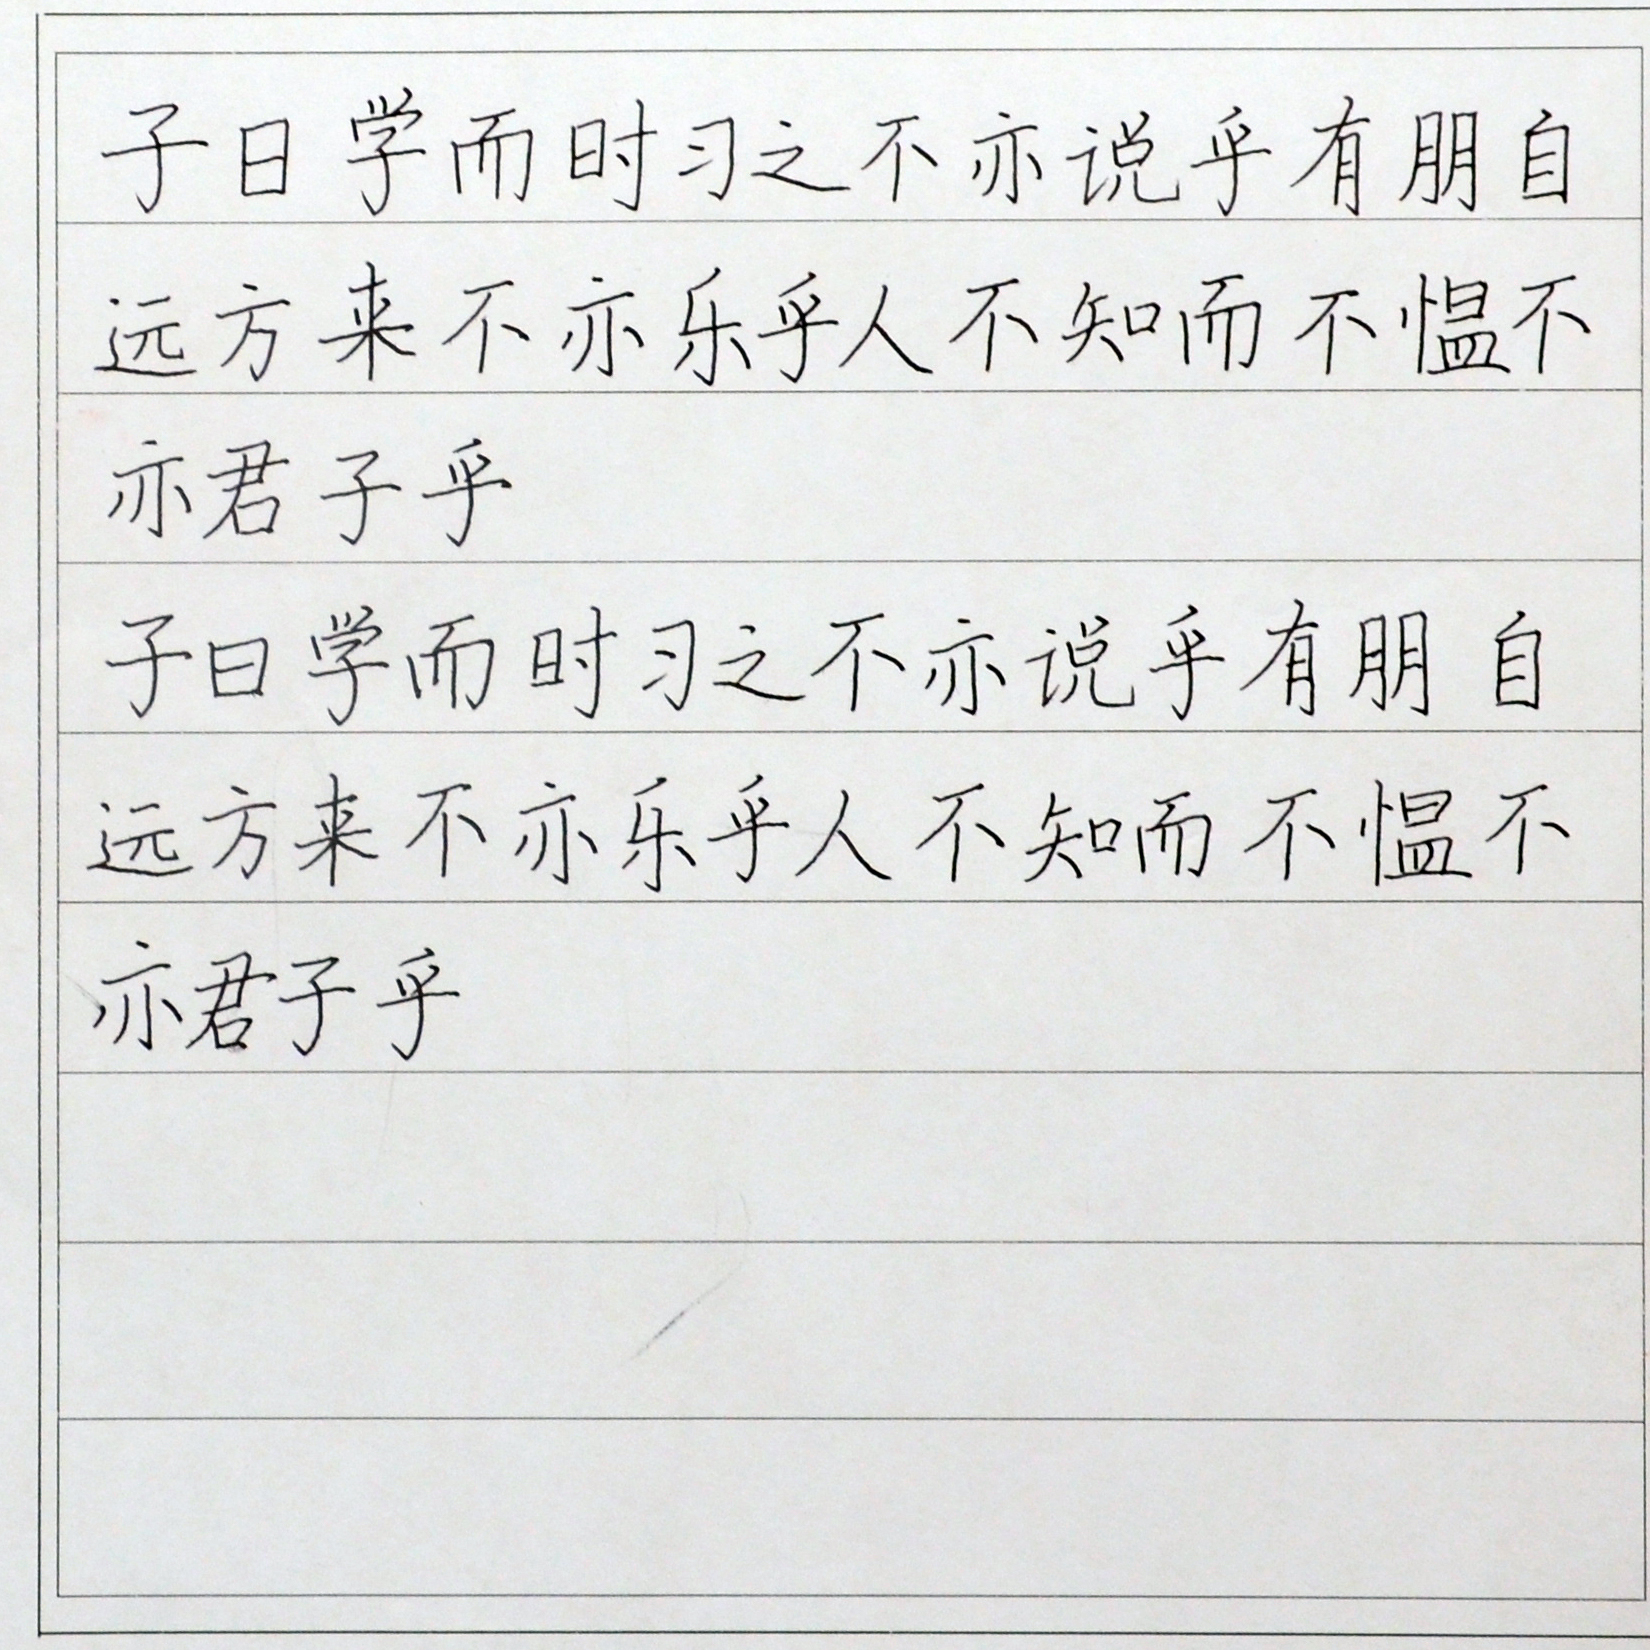 子曰学而时习之不亦说乎有朋自
远方来不亦乐乎人不知而不愠不
亦君子乎
子曰学而时习之不亦说乎有朋自
远方来不亦乐乎人不知而不愠不
亦君子乎